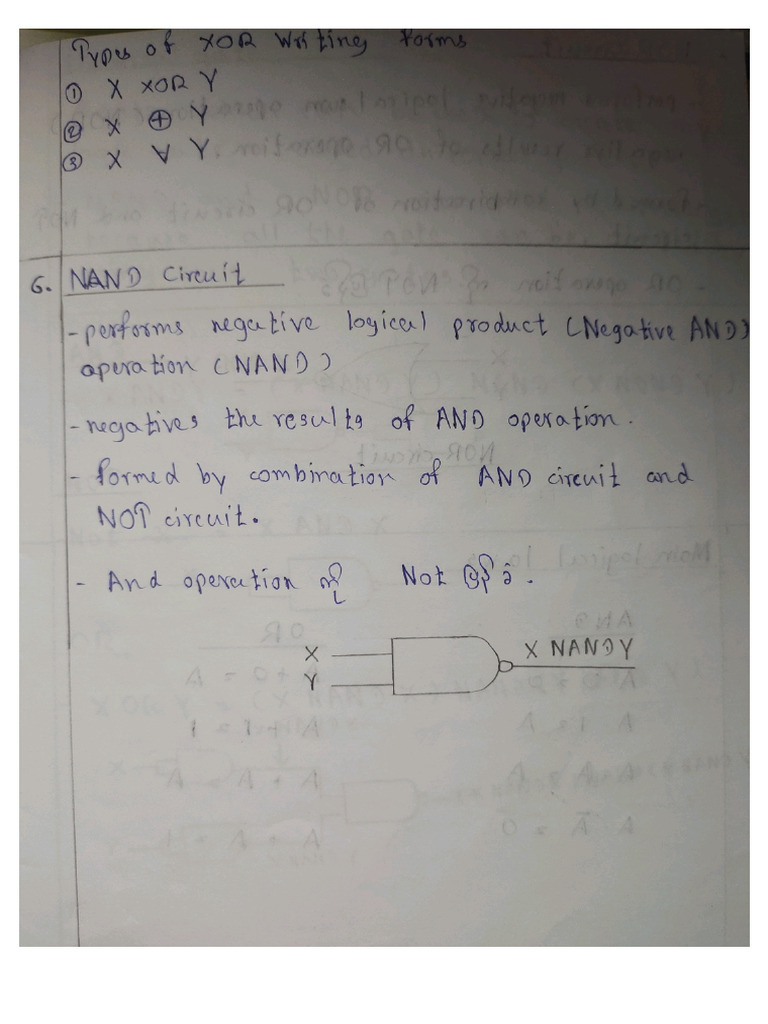 Types of XOR Writing Forms
① X XOR Y
② X ⊕ Y
③ X ∀ Y
6. NAND Circuit
- performs negative logical product (Negative AND)
aperation (NAND)
- negatives the results of AND operation.
- formed by combination of AND circuit and
NOT circuit.
- And operation ကို Not
X
Y
X NAND Y